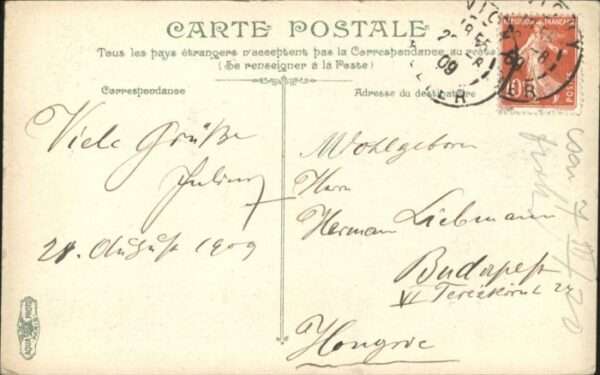 CARTE POSTALE
Tous les pays étrangers n'acceptent pas la Correspondance au recto
(Se renseigner à la Poste)
Correspondance
Adresse du destinataire
Viele Grüße
Julius
28. August 1909
Wohlgeboren
Herrn
Herman Liebmann
Budapest
VI Terézkörút 24
Hongrie
RÉPUBLIQUE FRANÇAISE
10
POSTES
09
AQUA PHOTO
PARIS